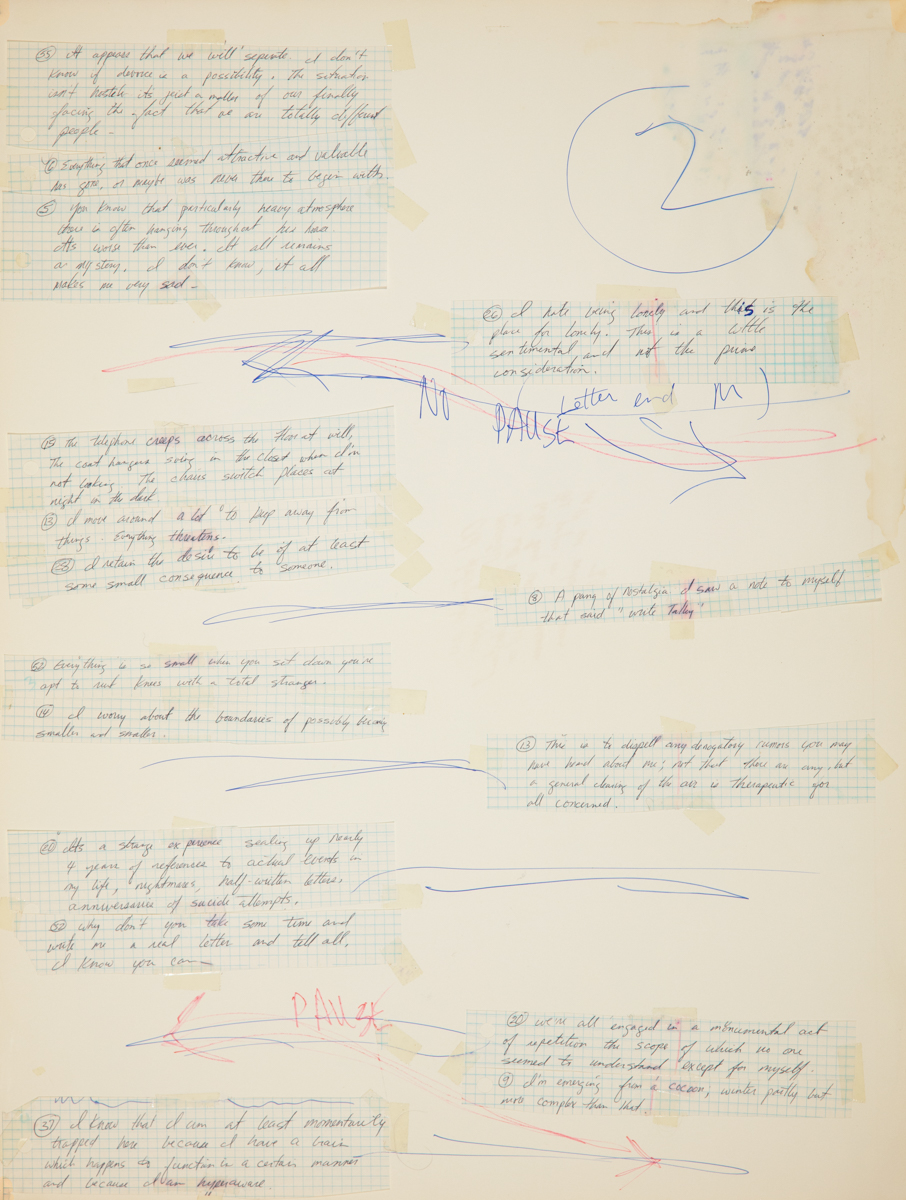 (35) It appears that we will seperate I don't
know if divorce is a possibility. The situation
isn't hostile its just a matter of our finally
facing the fact that we are totally different
people -
Everything that once seemed attractive and valuable
has gone, or maybe was never there to begin with.
(5) You know that particularly heavy atmosphere
there is often hanging throughout his house
Its worse than ever. It all remains
a mystery. I don't know, it all
makes me very sad -
2
(26) I hate being lonely and this is the
place for lonely. This is a little
sentimental and not the prime
consideration.
(Letter end M)
NO PAUSE
(15) The telephone creeps across the floor at will,
The coat hangers swing in the closet when I'm
not looking. The chairs switch places at
night in the dark.
(13) I move around a lot to keep away from
things. Everything threatens.
(33) I retain the desire to be of at least
some small consequence to someone.
(8) A pang of nostalgia I saw a note to myself
that said "write Talley"
Everything is so small when you sit down you're
apt to rub knees with a total stranger.
(14) I worry about the boundaries of possibly being
smaller and smaller.
(13) This is to dispell any derogatory rumors you may
have heard about me; not that there are any, but
a general clearing of the air is therapeutic for
all concerned.
(20) Its a strange experience sealing up nearly
4 years of references to actual events in
my life, nightmares, half-written letters,
anniversaries of suicide attempts.
why don't you take some time and
write me a real letter and tell all,
I know you can -
PAUSE
(20) we're all engaged in a monumental act
of repetition the scope of which no one
seemed to understand except for myself.
(9) I'm emerging from a cocoon, winter partly but
more complex than that.
(37) I know that I am at least momentarily
trapped here because I have a brain
which happens to function in a certain manner
and because I am hyperaware.